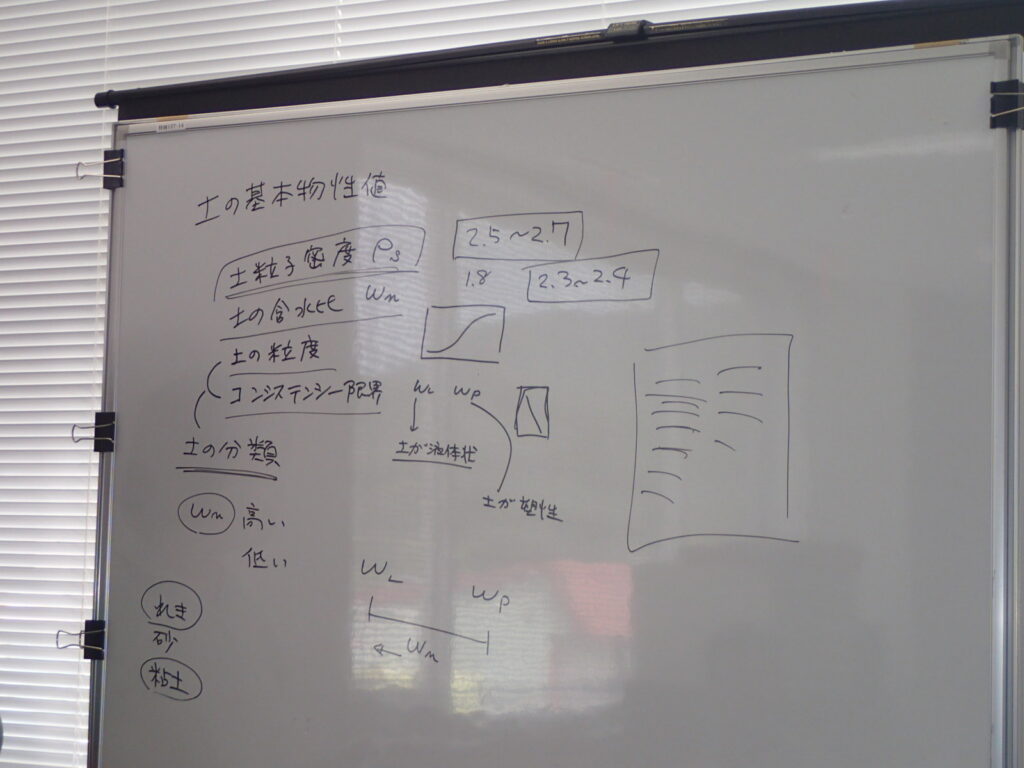 土の基本物性値
土粒子密度 ρs 2.5～2.7
1.8 2.3～2.4
土の含水比 Wn
土の粒度
コンシステンシー限界 WL Wp
土の分類
土が液体状
土が塑性
Wn 高い
低い
WL
Wp
Wn
れき
砂
粘土